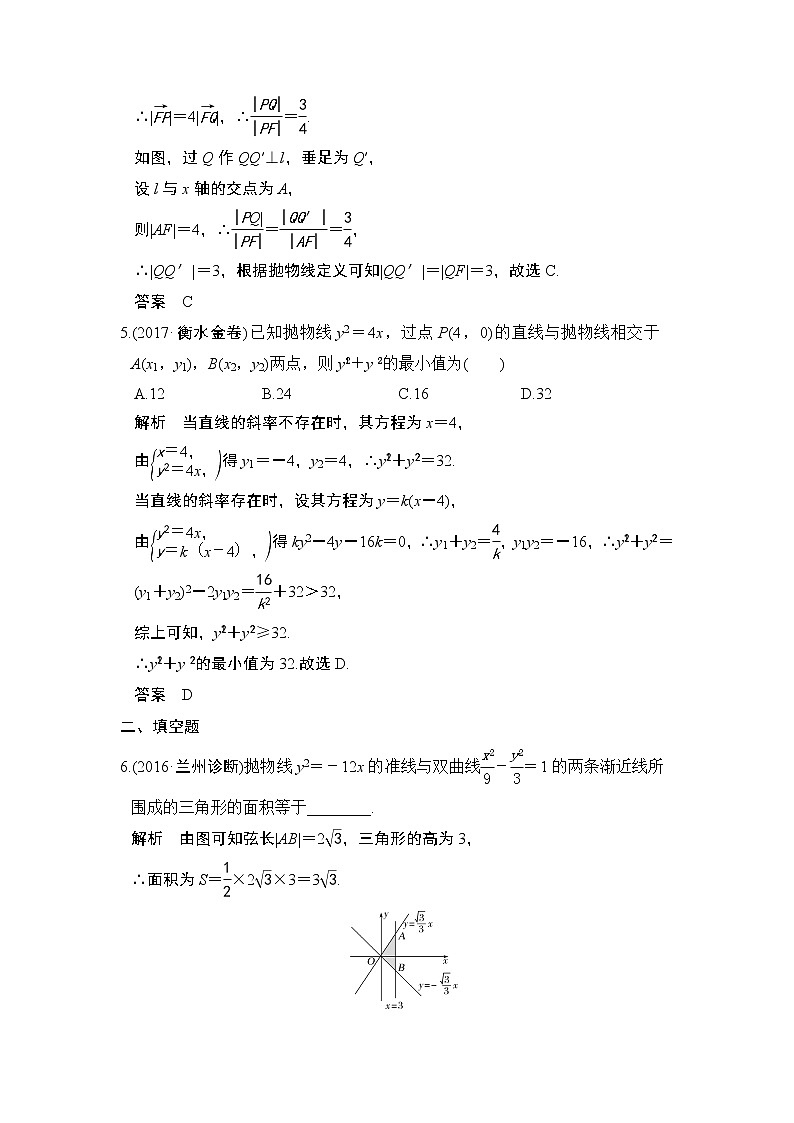 ∴|FP→|=4|FQ→|,∴|PQ|/|PF|=3/4.
如图,过Q作QQ′⊥l,垂足为Q′,
设l与x轴的交点为A,
则|AF|=4,∴|PQ|/|PF|=|QQ′|/|AF|=3/4,
∴|QQ′|=3,根据抛物线定义可知|QQ′|=|QF|=3,故选C.
答案 C
5.(2017·衡水金卷)已知抛物线y²=4x,过点P(4,0)的直线与抛物线相交于
A(x₁,y₁),B(x₂,y₂)两点,则y₁²+y₂²的最小值为(  )
A.12 B.24 C.16 D.32
解析 当直线的斜率不存在时,其方程为x=4,
由{x=4, y²=4x,得y₁=-4,y₂=4,∴y₁²+y₂²=32.
当直线的斜率存在时,设其方程为y=k(x-4),
由{y²=4x, y=k(x-4),得ky²-4y-16k=0,∴y₁+y₂=4/k,y₁y₂=-16,∴y₁²+y₂²=
(y₁+y₂)²-2y₁y₂=16/k²+32>32,
综上可知,y₁²+y₂²≥32.
∴y₁²+y₂²的最小值为32.故选D.
答案 D
二、填空题
6.(2016·兰州诊断)抛物线y²=-12x的准线与双曲线x²/9-y²/3=1的两条渐近线所
围成的三角形的面积等于________.
解析 由图可知弦长|AB|=2√3,三角形的高为3,
∴面积为S=1/2×2√3×3=3√3.
y
y=√3/3 x
A
O
x
B
y=-√3/3 x
x=3